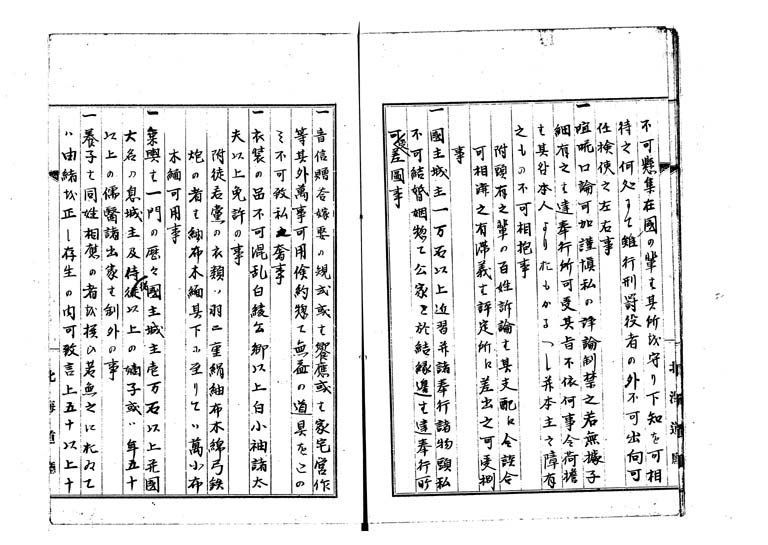 不可懸集在國の輩も其所を守り下知を可相
待之何処にて雖行刑罰役者の外不可出向可
任検使之左右事
一喧吡口論可加謹慎私の諍論制禁之若無據子
細有之も達奉行所可受其旨不依何事令荷擔
も其咎本人よりたもかるへし并本主之障有
之もの不可相抱事
附頭有之輩の百姓訴論も其支配に令談合
可相済之有滞義も評定所に差出之可受捌
事
一國主城主一万石以上近習并諸奉行諸物頭私
不可結婚姻惣て公家と於結縁邊も達奉行所
可受差圖事
一音信贈答嫁娶の規式或も饗應或も家宅営作
等其外萬事可用倹約惣て無益の道具をこの
ミ不可致私之奢事
一衣装の品不可混乱白綾公卿以上白小袖諸太
夫以上免許の事
附徒若黨の衣類ハ羽二重絹紬布木綿弓鉄
炮の者も紬布木綿其下に至りてハ萬小布
木綿可用事
一乗輿も一門の歴々國主城主壱万石以上并國
大名の息城主及侍従以上の嫡子或ハ年五十
以上の儒醫諸出家も制外の事
一養子も同姓相應の者を撰ひ若無之におゐて
ハ由緒を正し存生の内可致言上五十以上十
北海道廳
北海道廳